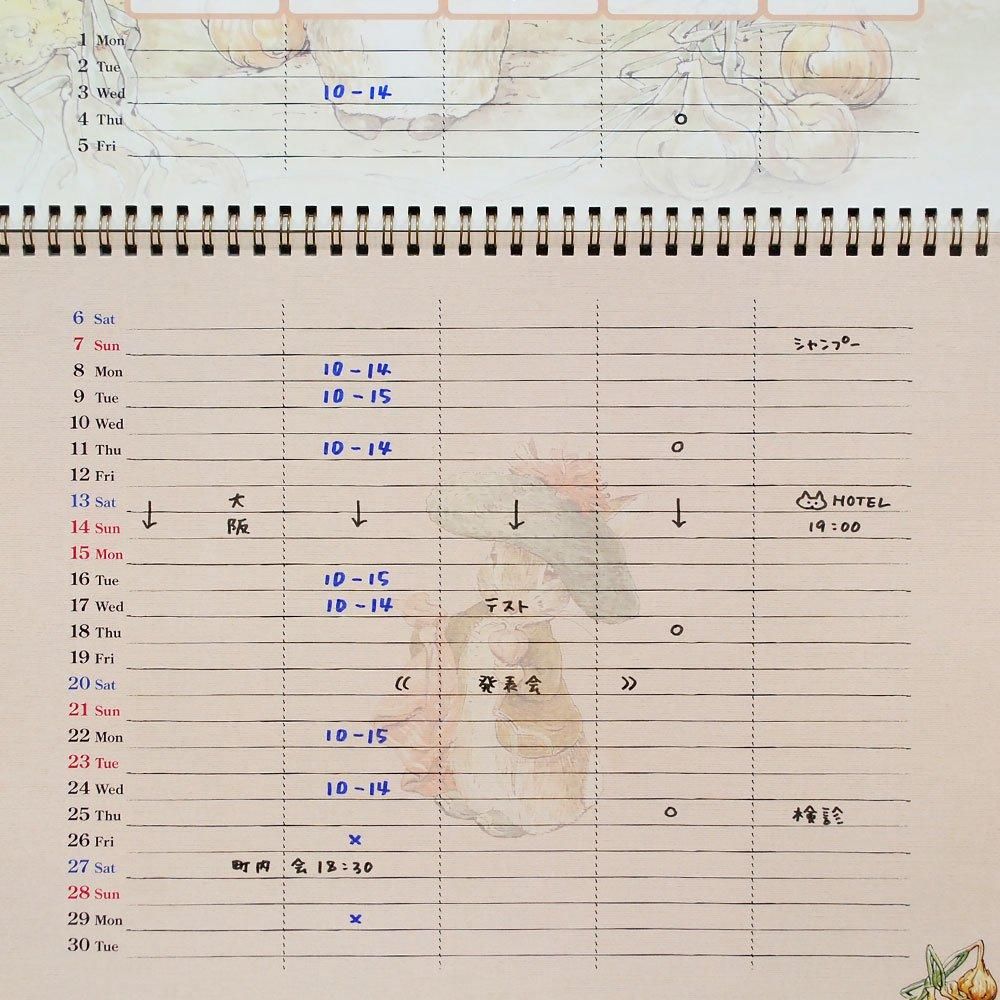 1 Mon
2 Tue
3 Wed 10-14
4 Thu ○
5 Fri
6 Sat
7 Sun シャンプー
8 Mon 10-14
9 Tue 10-15
10 Wed
11 Thu 10-14 ○
12 Fri
13 Sat 大 HOTEL
14 Sun 阪 19:00
15 Mon
16 Tue 10-15
17 Wed 10-14 テスト
18 Thu ○
19 Fri
20 Sat 《 発表会 》
21 Sun
22 Mon 10-15
23 Tue
24 Wed 10-14
25 Thu ○ 検診
26 Fri ×
27 Sat 町内会 18:30
28 Sun
29 Mon ×
30 Tue